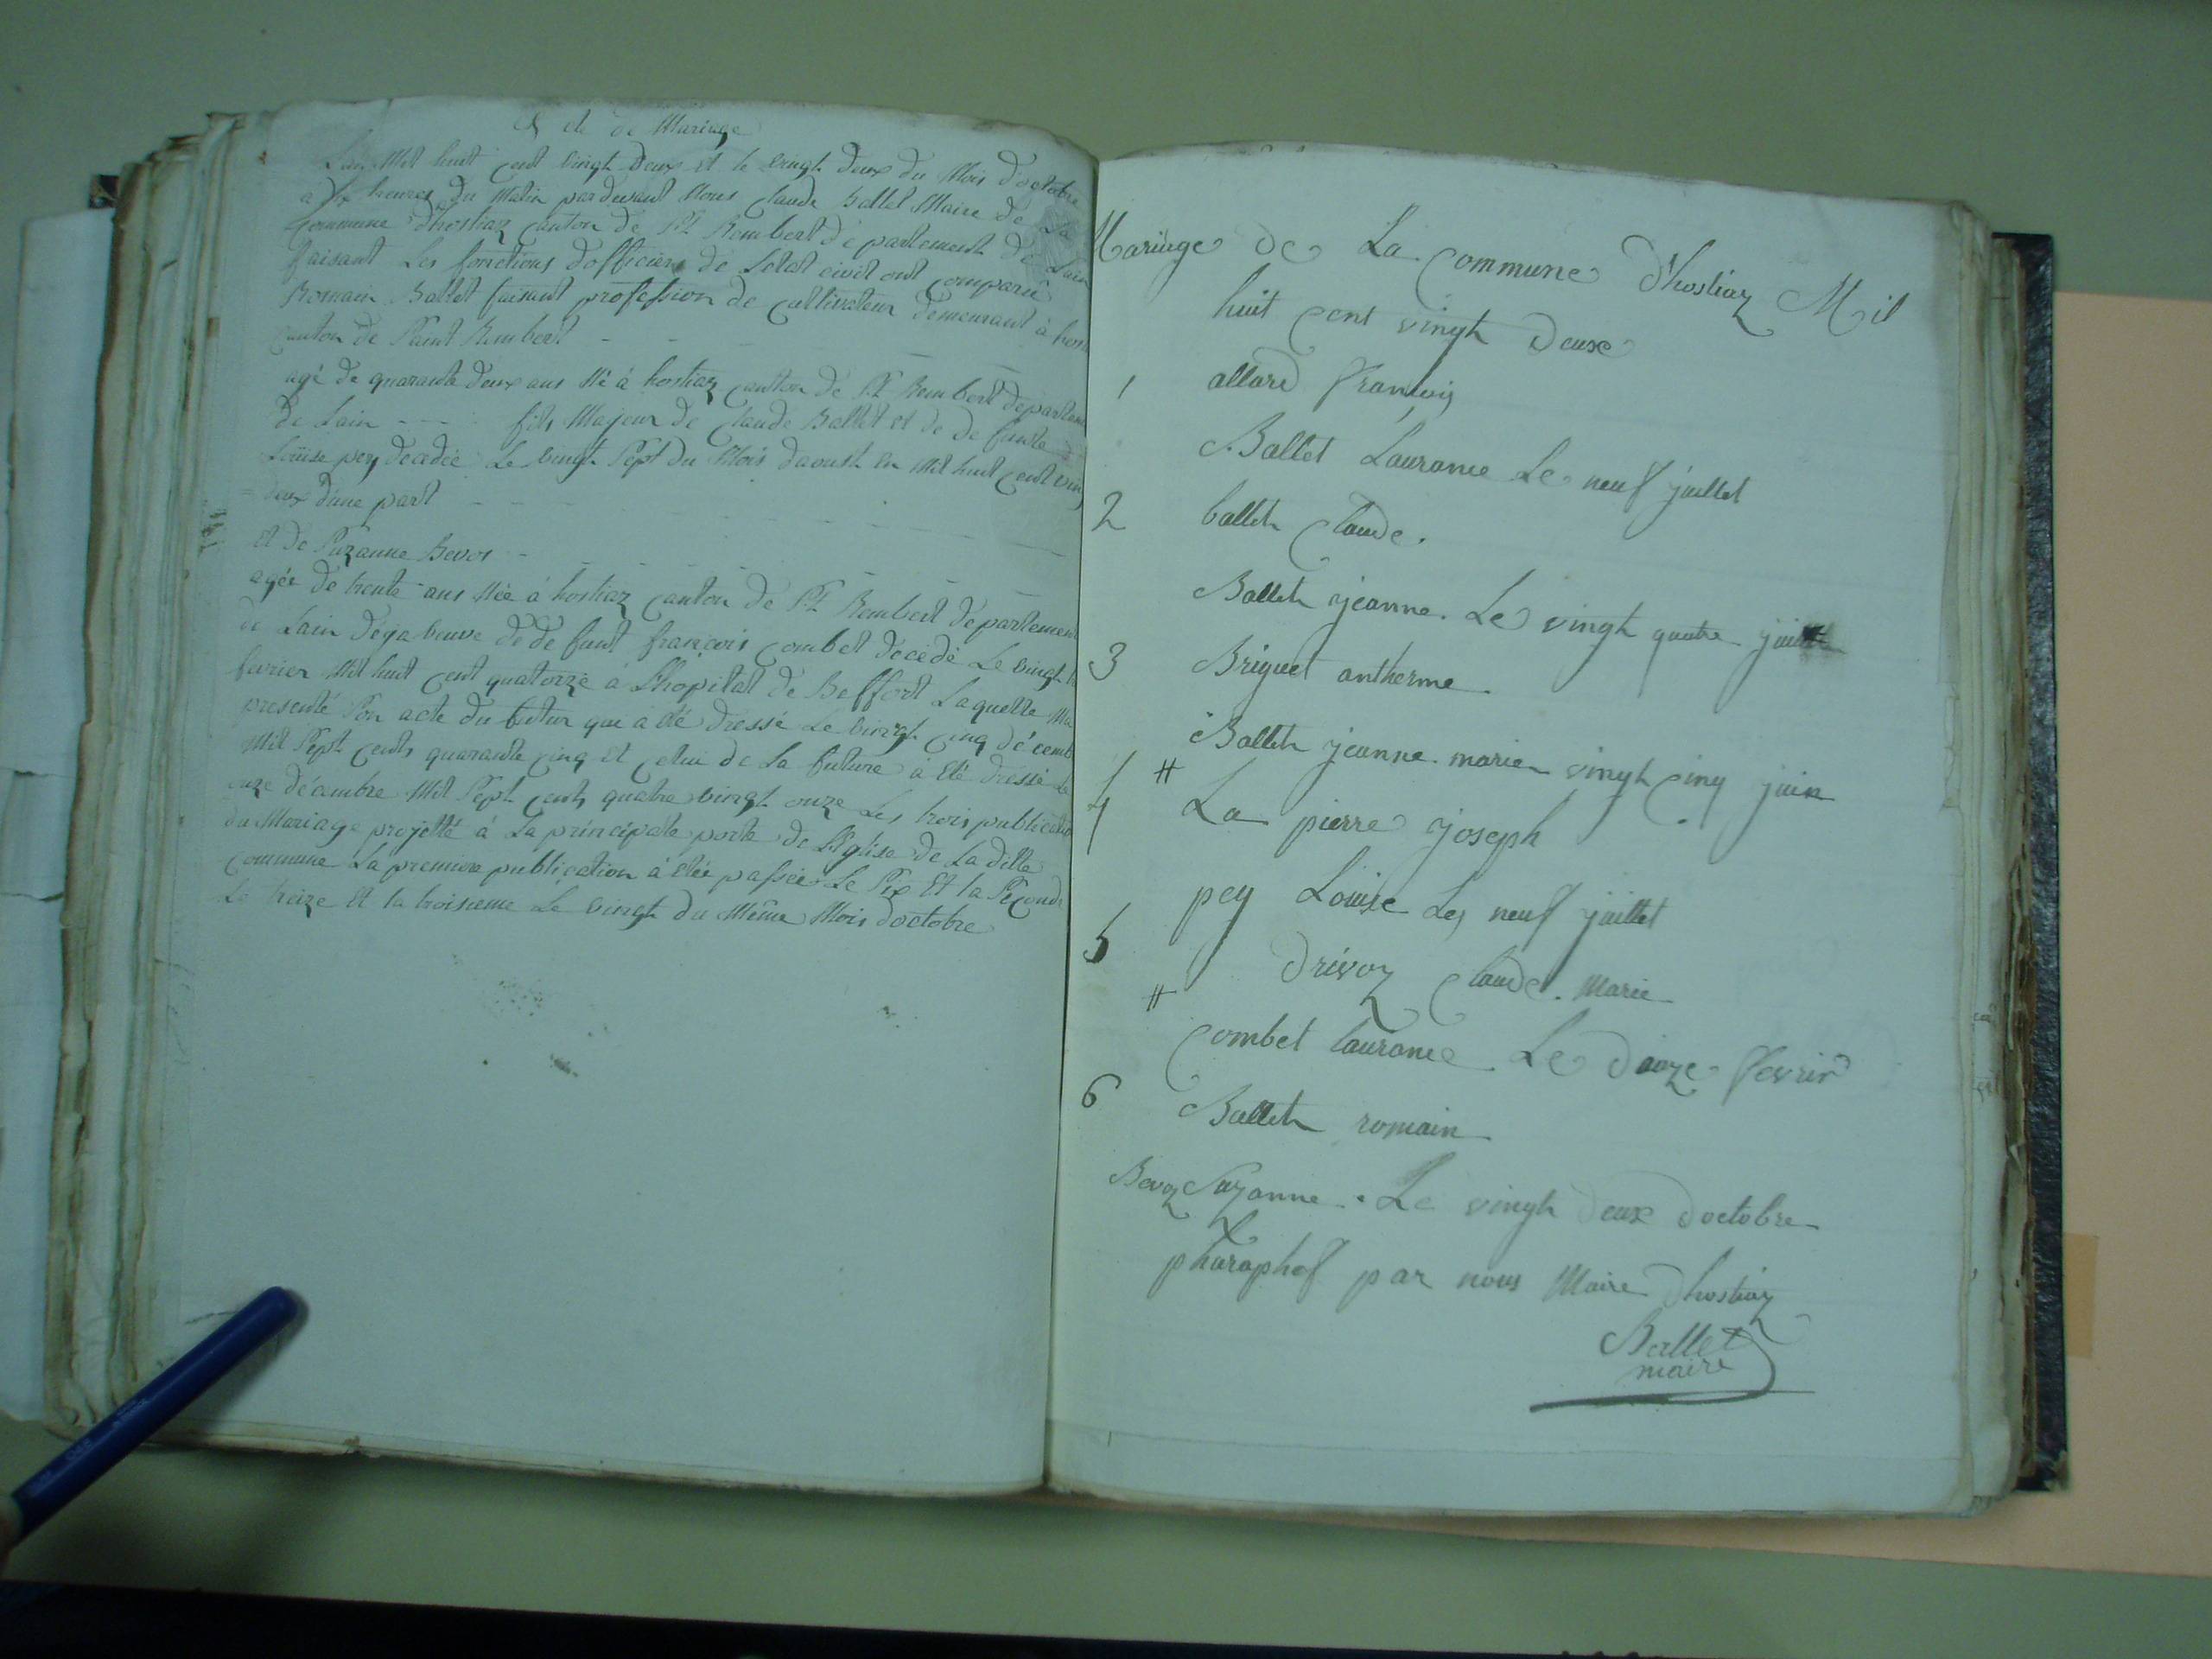 Acte de Mariage
Lan Mil huit cent vingt deux et le vingt deux du Mois d'octobre
a dix heures du Matin par devant Nous Claude Ballet Maire de La
Commune d'hostiaz canton de St Rembert département de Lain
faisant Les fonctions d'officiers de Letat civil ont comparu
Romain Ballet faisant profession de cultivateur demeurant à
canton de Saint Rembert
agé de quarante deux ans Né à hostiaz canton de St Rembert
de Lain fils Majeur de Claude Ballet et de de funte
Louise pey decedée Le vingt Sept du Mois daoust en Mil huit cent
deux d'une part
et de Suzanne Bevoz
agée de trente ans Née à hostiaz canton de St Rembert département
de Lain Déja veuve de de funt françois combet decédé Le vingt
fevrier Mil huit cent quatorze à Lhopital de Beffort Laquelle
présenté Son acte du futur que à été dressé Le vingt cinq
Mil Sept cents quarante cinq et celui de La future à été dressé Le
onze décembre Mil Sept cents quatre vingt onze Les trois
du Mariage projetté à La principale porte de L'Eglise de La ditte
commune La premiere publication à étée passée Le Six Et la Seconde
Le treize et la troisieme Le vingt du Même Mois doctobre
Mariage de La Commune d'hostiaz Mil
huit cent vingt deux
1 allard françois
Ballet Laurance Le neuf juillet
2 ballet Claude.
Ballet jeanne. Le vingt quatre
3 Briguet antherme
Ballet jeanne. marie vingt cinq juin
4 # La pierre joseph
pey Louise Les neuf juillet
5 drivoz Claude. Marie
# Combet laurance Le douze fevrir
6 Ballet romain
Bevoz Suzanne. Le vingt deux doctobre
par nous Maire dhostiaz
Ballet
maire